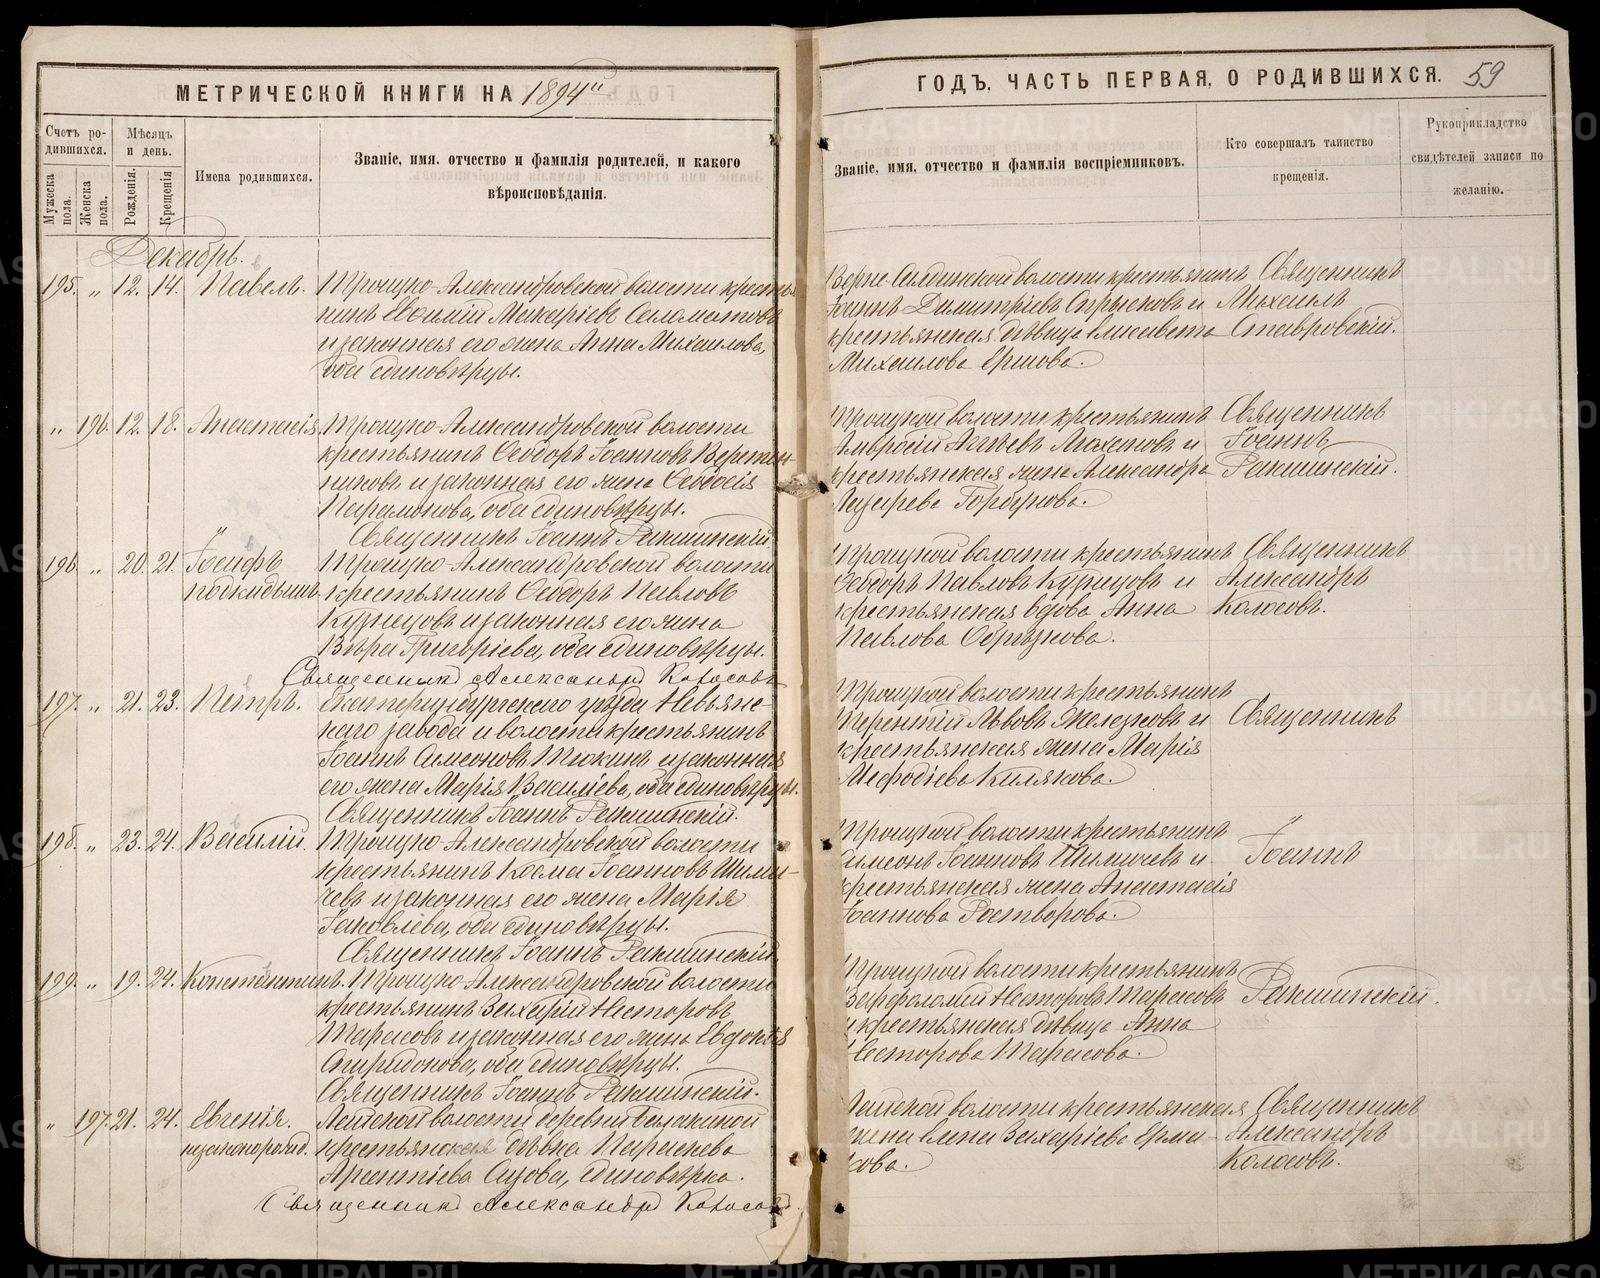 МЕТРИЧЕСКОЙ КНИГИ НА 1894й
Счетъ ро-
дившихся.
Мѣсяцъ
и день.
Мужеска
пола.
Женска
пола.
Рожденія.
Крещенія
Имена родившихся.
Званіе, имя, отчество и фамилія родителей, и какого
вѣроисповѣданія.
Декабрь.
195. „ 12. 14. Павелъ. Троицко-Александровской волости крестья
нинъ Евѳимій Макаріевъ Саламатовъ
и законная его жена Анна Михаилова,
оба единовѣрцы.
„ 196. 12. 18. Анастасія Троицко-Александровской волости
крестьянинъ Ѳеодоръ Іоанновъ Веретен-
никовъ и законная его жена Ѳеодосія
Парамонова, оба единовѣрцы.
Священникъ Іоаннъ
196. „ 20. 21. Іосифъ Троицко-Александровской волости
подкидышъ крестьянинъ Ѳеодоръ Павловъ
Кузнецовъ и законная его жена
Вѣра Григоріева, оба единовѣрцы.
Священникъ Александръ Колосовъ
197. „ 21. 23. Петръ. Екатеринбургскаго уѣзда Невьянс-
каго завода и волости крестьянинъ
Іоаннъ Симеоновъ Тюкинъ и законная
его жена Марія Василіева, оба единовѣрцы.
Священникъ Іоаннъ
198. „ 23. 24. Василій. Троицко-Александровской волости
крестьянинъ Косма Іоанновъ Шими-
чевъ и законная его жена Марія
Іаковлева, оба единовѣрцы.
Священникъ Іоаннъ
199. „ 19. 24. Константинъ. Троицко-Александровской волости
крестьянинъ Захарій Несторовъ
Тарасовъ и законная его жена Евдокія
Спиридонова, оба единовѣрцы.
Священникъ Іоаннъ
„ 197. 21. 24. Евгенія. волости деревни
незаконорожд. крестьянская дѣвка Параскева
Арсентіева единовѣрка.
Священникъ Александръ Колосовъ.
ГОДЪ, ЧАСТЬ ПЕРВАЯ, О РОДИВШИХСЯ. 59
Званіе, имя, отчество и фамилія воспріемниковъ.
Кто совершалъ таинство
крещенія.
Рукоприкладство
свидѣтелей записи по
желанію.
Верхне-Салдинской волости крестьянинъ Священникъ
Іоаннъ Димитріевъ и Михаилъ
крестьянская дѣвица Елисавета Ставровскій.
Михаилова Ершова.
Троицкой волости крестьянинъ Священникъ
Амвросій и Іоаннъ
крестьянская жена Александра
Лазарева Горбунова.
Троицкой волости крестьянинъ Священникъ
Ѳеодоръ Павловъ Кузнецовъ и Александръ
крестьянская вдова Анна Колосовъ.
Павлова Обрѣзкова.
Троицкой волости крестьянинъ
Терентій Львовъ Железковъ и Священникъ
крестьянская жена Марія
Меѳодіева Килякова.
Троицкой волости крестьянинъ
Симеонъ Іоанновъ Шимичевъ и Іоаннъ
крестьянская жена Анастасія
Іоаннова Растворова.
Троицкой волости крестьянинъ
Варфоломей Несторовъ Тарасовъ
и крестьянская дѣвица Анна
Несторова Тарасова.
волости крестьянская Священникъ
жена Елена Захаріева Ерма- Александръ
кова. Колосовъ.
METRIKI.GASO-URAL.RU